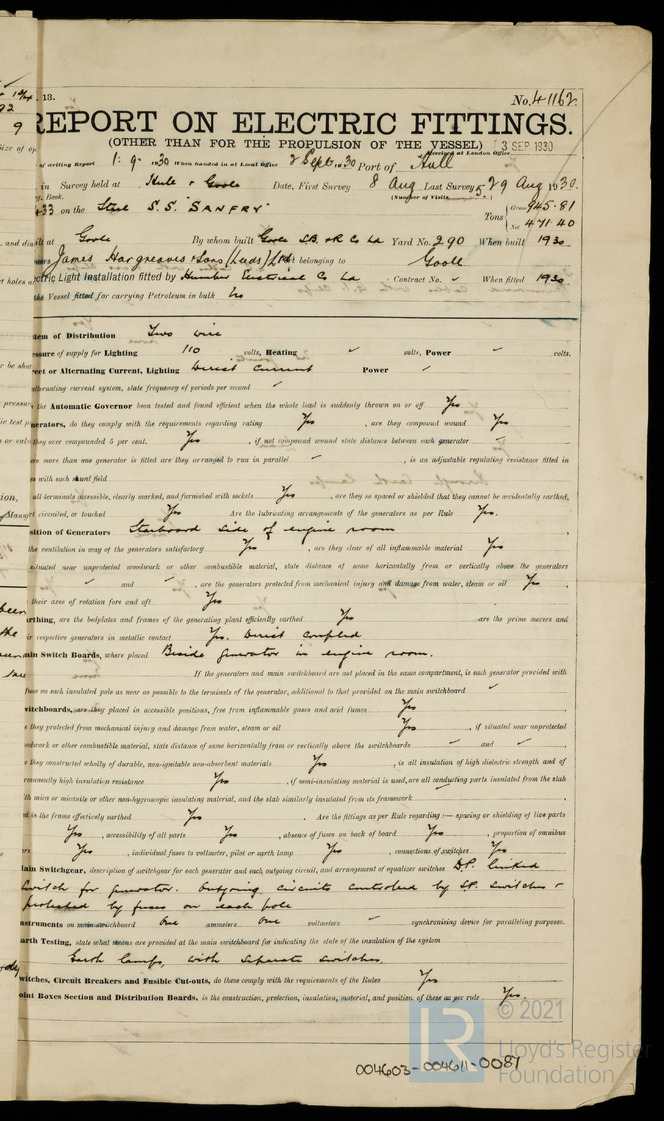 13.
No. 41162.
REPORT ON ELECTRIC FITTINGS.
(OTHER THAN FOR THE PROPULSION OF THE VESSEL)
Received at London Office
3 SEP 1930
of writing Report 1. 9. 1930 When handed in at Local Office 2 Sept 1930 Port of Hull
in Survey held at Hull & Goole Date, First Survey 8 Aug Last Survey 29 Aug 1930.
Book. (Number of Visits 5.)
33 on the Steel S.S. "SANFRY" Tons { Gross 945.81
Net 471.40
ilt at Goole By whom built Goole S.B. & R. Co Ld Yard No. 290 When built 1930.
ners James Hargreaves & Sons (Leeds) Ltd belonging to Goole
ctric Light Installation fitted by Humber Electrical Co Ld Contract No. ✓ When fitted 1930
the Vessel fitted for carrying Petroleum in bulk No
tem of Distribution Two wire
essure of supply for Lighting 110 volts, Heating ✓ volts, Power ✓ volts.
rect or Alternating Current, Lighting Direct Current Power ✓
alternating current system, state frequency of periods per second ✓
the Automatic Governor been tested and found efficient when the whole load is suddenly thrown on or off Yes
nerators, do they comply with the requirements regarding rating Yes , are they compound wound Yes
they over compounded 5 per cent. Yes , if not compound wound state distance between each generator ✓
re more than one generator is fitted are they arranged to run in parallel ✓ , is an adjustable regulating resistance fitted in
s with each shunt field
all terminals accessible, clearly marked, and furnished with sockets Yes , are they so spaced or shielded that they cannot be accidentally earthed,
rt circuited, or touched Yes Are the lubricating arrangements of the generators as per Rule Yes.
sition of Generators Starboard side of engine room
the ventilation in way of the generators satisfactory Yes , are they clear of all inflammable material Yes
situated near unprotected woodwork or other combustible material, state distance of same horizontally from or vertically above the generators
✓ and ✓ , are the generators protected from mechanical injury and damage from water, steam or oil Yes
their axes of rotation fore and aft Yes
rthing, are the bedplates and frames of the generating plant efficiently earthed Yes are the prime movers and
ir respective generators in metallic contact Yes. Direct coupled
ain Switch Boards, where placed Beside generator in engine room.
If the generators and main switchboard are not placed in the same compartment, is each generator provided with
fuse on each insulated pole as near as possible to the terminals of the generator, additional to that provided on the main switchboard ✓
witchboards, are they placed in accessible positions, free from inflammable gases and acid fumes Yes
e they protected from mechanical injury and damage from water, steam or oil Yes , if situated near unprotected
odwork or other combustible material, state distance of same horizontally from or vertically above the switchboards ✓ and ✓
e they constructed wholly of durable, non-ignitable non-absorbent materials Yes , is all insulation of high dielectric strength and of
rmanently high insulation resistance Yes , if semi-insulating material is used, are all conducting parts insulated from the slab
th mica or micanite or other non-hygroscopic insulating material, and the slab similarly insulated from its framework ✓
d is the frame effectively earthed Yes . Are the fittings as per Rule regarding :— spacing or shielding of live parts
Yes , accessibility of all parts Yes , absence of fuses on back of board Yes , proportion of omnibus
rs Yes , individual fuses to voltmeter, pilot or earth lamp Yes , connections of switches Yes
ain Switchgear, description of switchgear for each generator and each outgoing circuit, and arrangement of equalizer switches D.P. linked
switch for generator. Outgoing circuits controlled by S.P. switches &
protected by fuses on each pole
nstruments on main switchboard One ammeters One voltmeters ✓ synchronising device for paralleling purposes.
arth Testing, state what means are provided at the main switchboard for indicating the state of the insulation of the system
Earth lamps, with separate switches.
witches, Circuit Breakers and Fusible Cut-outs, do these comply with the requirements of the Rules Yes
oint Boxes Section and Distribution Boards, is the construction, protection, insulation, material, and position of these as per rule Yes.
© 2021
LR
Lloyd's Register
Foundation
004603-004611-0087